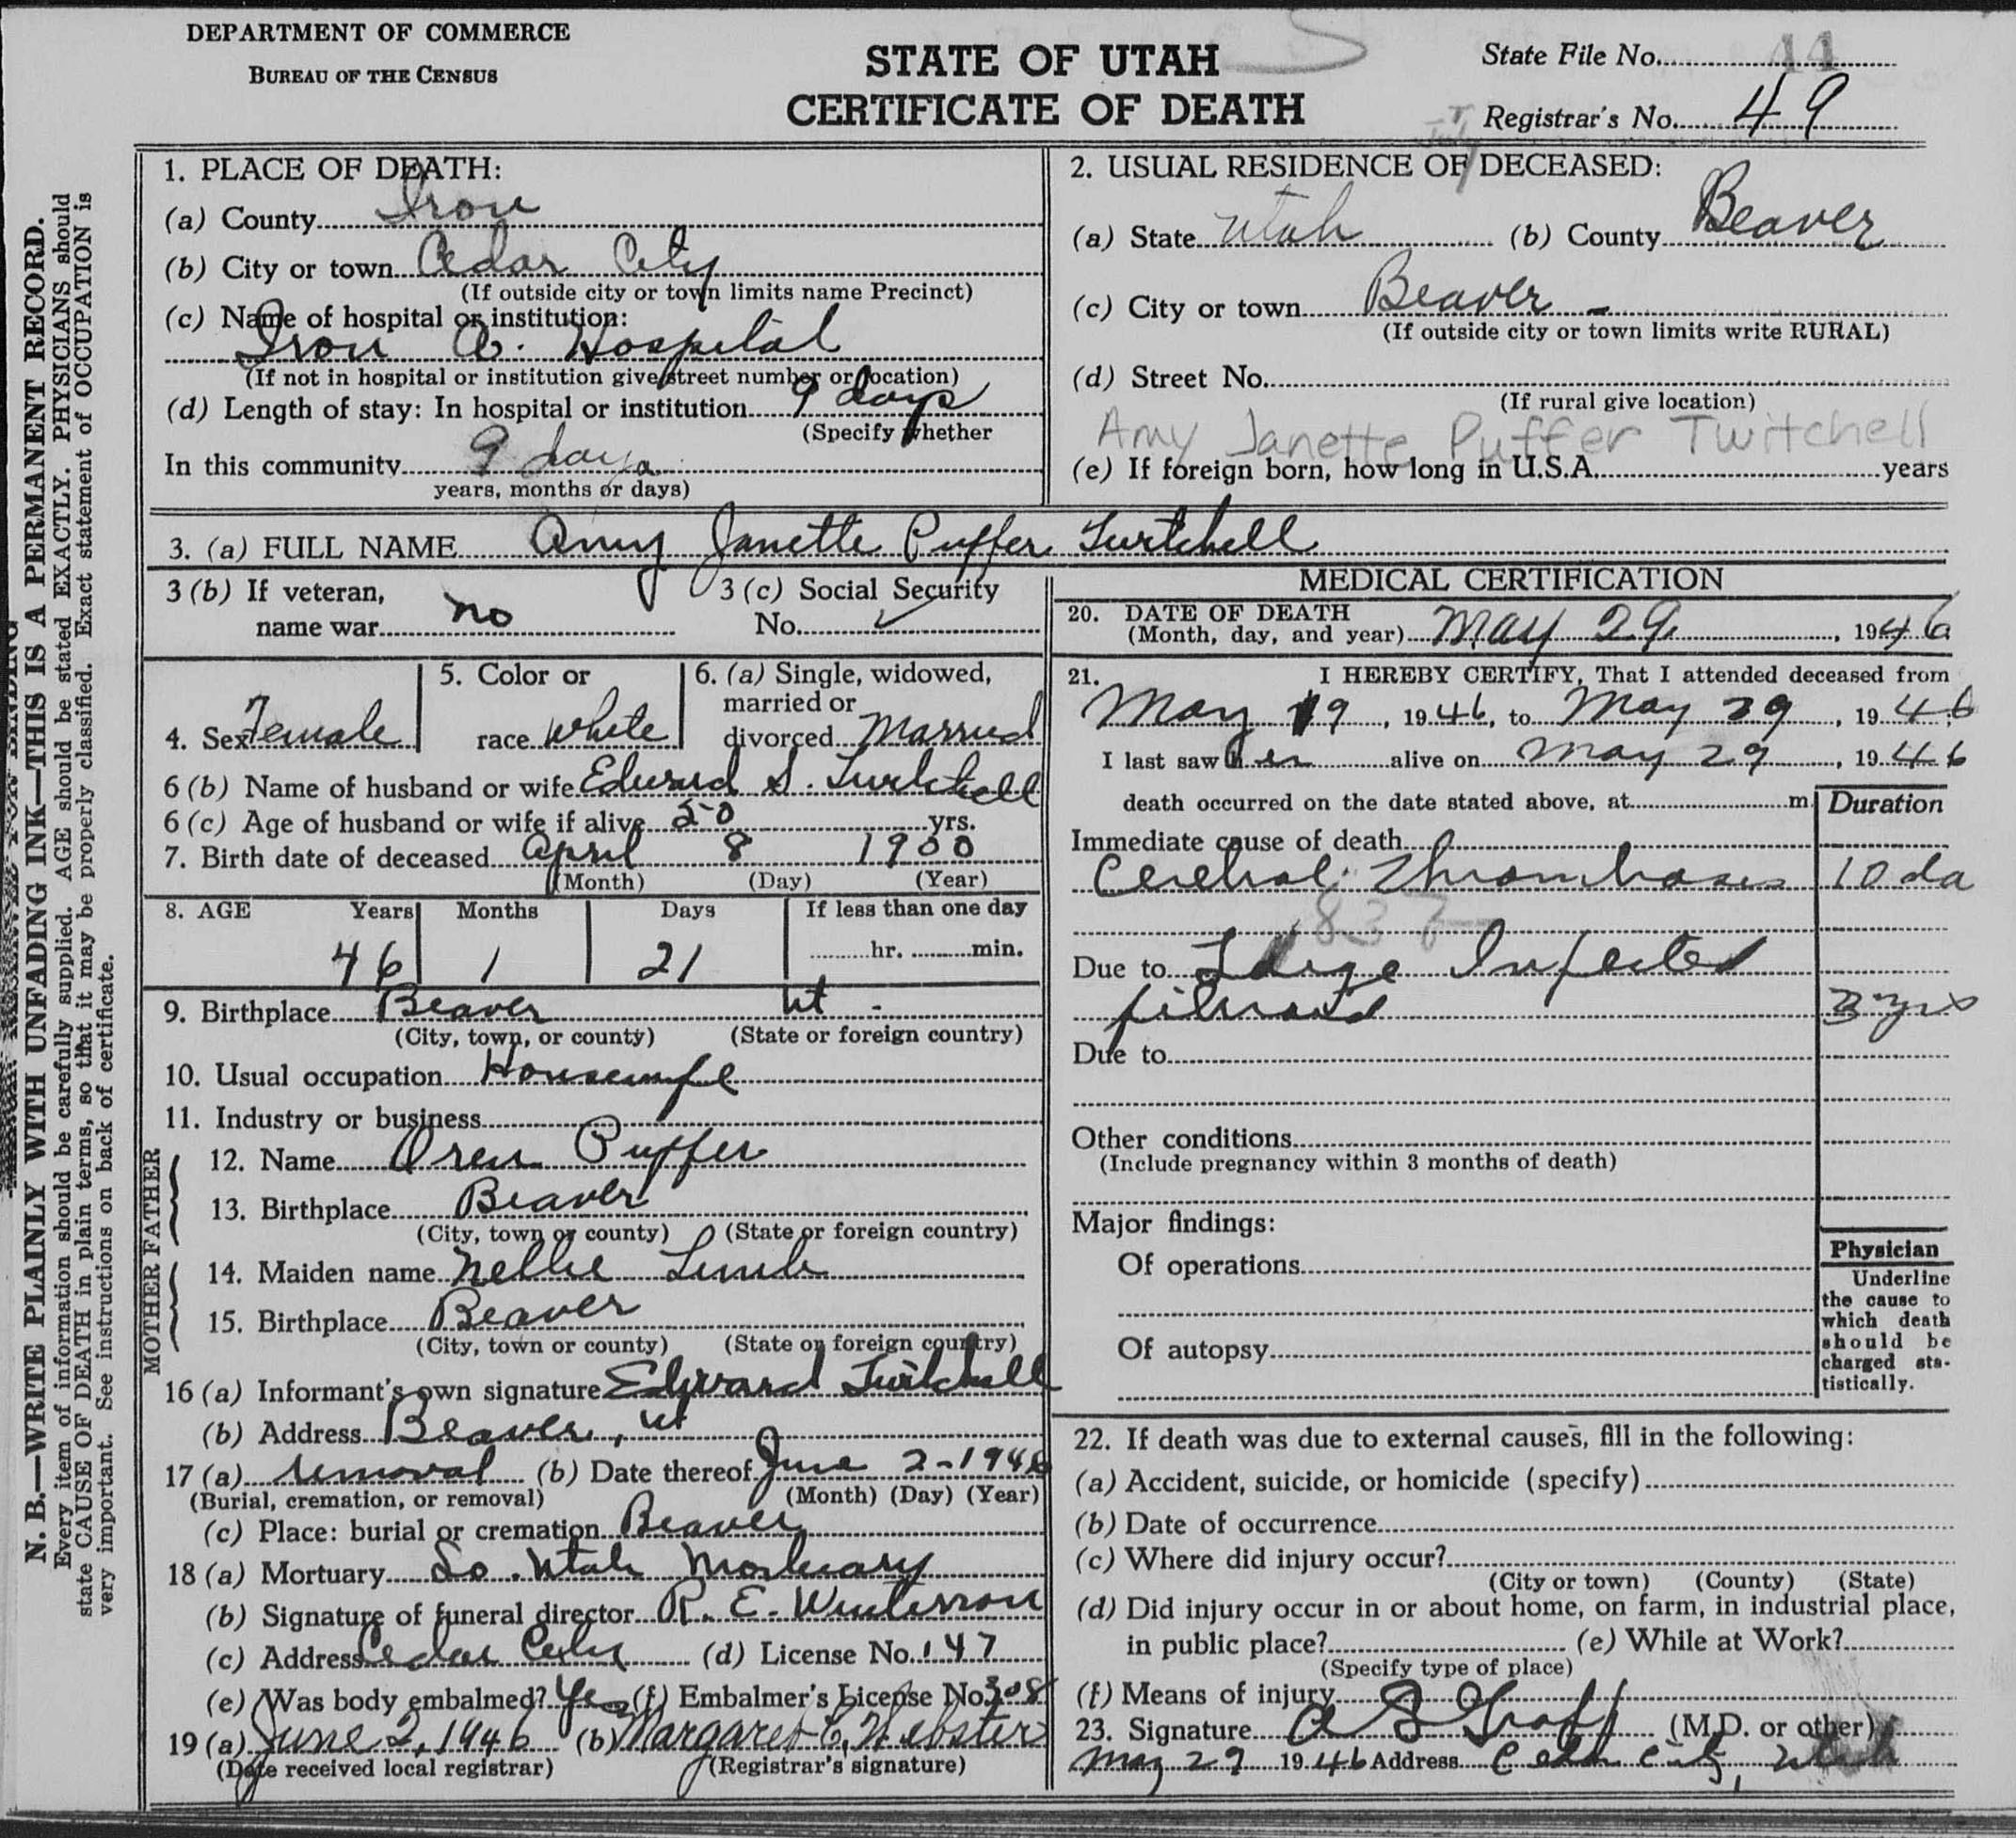 DEPARTMENT OF COMMERCE
BUREAU OF THE CENSUS
STATE OF UTAH
CERTIFICATE OF DEATH
State File No. 44
Registrar's No. 49
N. B.—WRITE PLAINLY WITH UNFADING INK—THIS IS A PERMANENT RECORD.
Every item of information should be carefully supplied. AGE should be stated EXACTLY. PHYSICIANS should
state CAUSE OF DEATH in plain terms, so that it may be properly classified. Exact statement of OCCUPATION is
very important. See instructions on back of certificate.
1. PLACE OF DEATH:
(a) County Iron
(b) City or town Cedar City
(If outside city or town limits name Precinct)
(c) Name of hospital or institution:
Iron Co. Hospital
(If not in hospital or institution give street number or location)
(d) Length of stay: In hospital or institution 9 days
(Specify whether
In this community 9 days
years, months or days)
2. USUAL RESIDENCE OF DECEASED:
(a) State Utah (b) County Beaver
(c) City or town Beaver -
(If outside city or town limits write RURAL)
(d) Street No.
(If rural give location)
Amy Janette Puffer Twitchell
(e) If foreign born, how long in U.S.A. years
3. (a) FULL NAME Amy Janette Puffer Twitchell
3 (b) If veteran, name war no
3 (c) Social Security No. ✓
4. Sex Female
5. Color or race white
6. (a) Single, widowed, married or divorced Married
6 (b) Name of husband or wife Edward S. Twitchell
6 (c) Age of husband or wife if alive 50 yrs.
7. Birth date of deceased April 8 1900
(Month) (Day) (Year)
8. AGE Years Months Days If less than one day
46 1 21 hr. min.
9. Birthplace Beaver Ut -
(City, town, or county) (State or foreign country)
10. Usual occupation Housewife
11. Industry or business
FATHER
12. Name Oren Puffer
13. Birthplace Beaver
(City, town or county) (State or foreign country)
MOTHER
14. Maiden name Nellie
15. Birthplace Beaver
(City, town or county) (State or foreign country)
16 (a) Informant's own signature Edward Twitchell
(b) Address Beaver, Ut
17 (a) removal (b) Date thereof June 2-1946
(Burial, cremation, or removal) (Month) (Day) (Year)
(c) Place: burial or cremation Beaver
18 (a) Mortuary So. Utah Mortuary
(b) Signature of funeral director R. E. Winterrose
(c) Address Cedar City (d) License No. 147
(e) Was body embalmed? Yes (f) Embalmer's License No. 308
19 (a) June 2, 1946 (b) Margaret C. Webster
(Date received local registrar) (Registrar's signature)
MEDICAL CERTIFICATION
20. DATE OF DEATH
(Month, day, and year) May 29, 1946
21. I HEREBY CERTIFY, That I attended deceased from
May 19, 1946, to May 29, 1946;
I last saw her alive on May 29, 1946
death occurred on the date stated above, at m. Duration
Immediate cause of death
Cerebral Thrombosis 10 da
837
Due to Large Infected
fibroid 3 yrs
Due to
Other conditions
(Include pregnancy within 3 months of death)
Major findings:
Of operations
Of autopsy
Physician
Underline
the cause to
which death
should be
charged sta-
tistically.
22. If death was due to external causes, fill in the following:
(a) Accident, suicide, or homicide (specify)
(b) Date of occurrence
(c) Where did injury occur?
(City or town) (County) (State)
(d) Did injury occur in or about home, on farm, in industrial place,
in public place? (e) While at Work?
(Specify type of place)
(f) Means of injury
23. Signature (M.D. or other)
May 29 1946 Address Cedar City, Utah